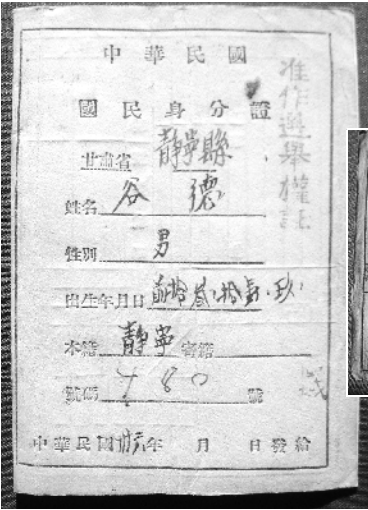 中華民國
國民身分證
准作選舉權証
甘肅省靜寧縣
姓名 谷德
性別 男
出生年月日
本籍 靜寧 寄籍
號碼 80 號
中華民國 年 月 日發給